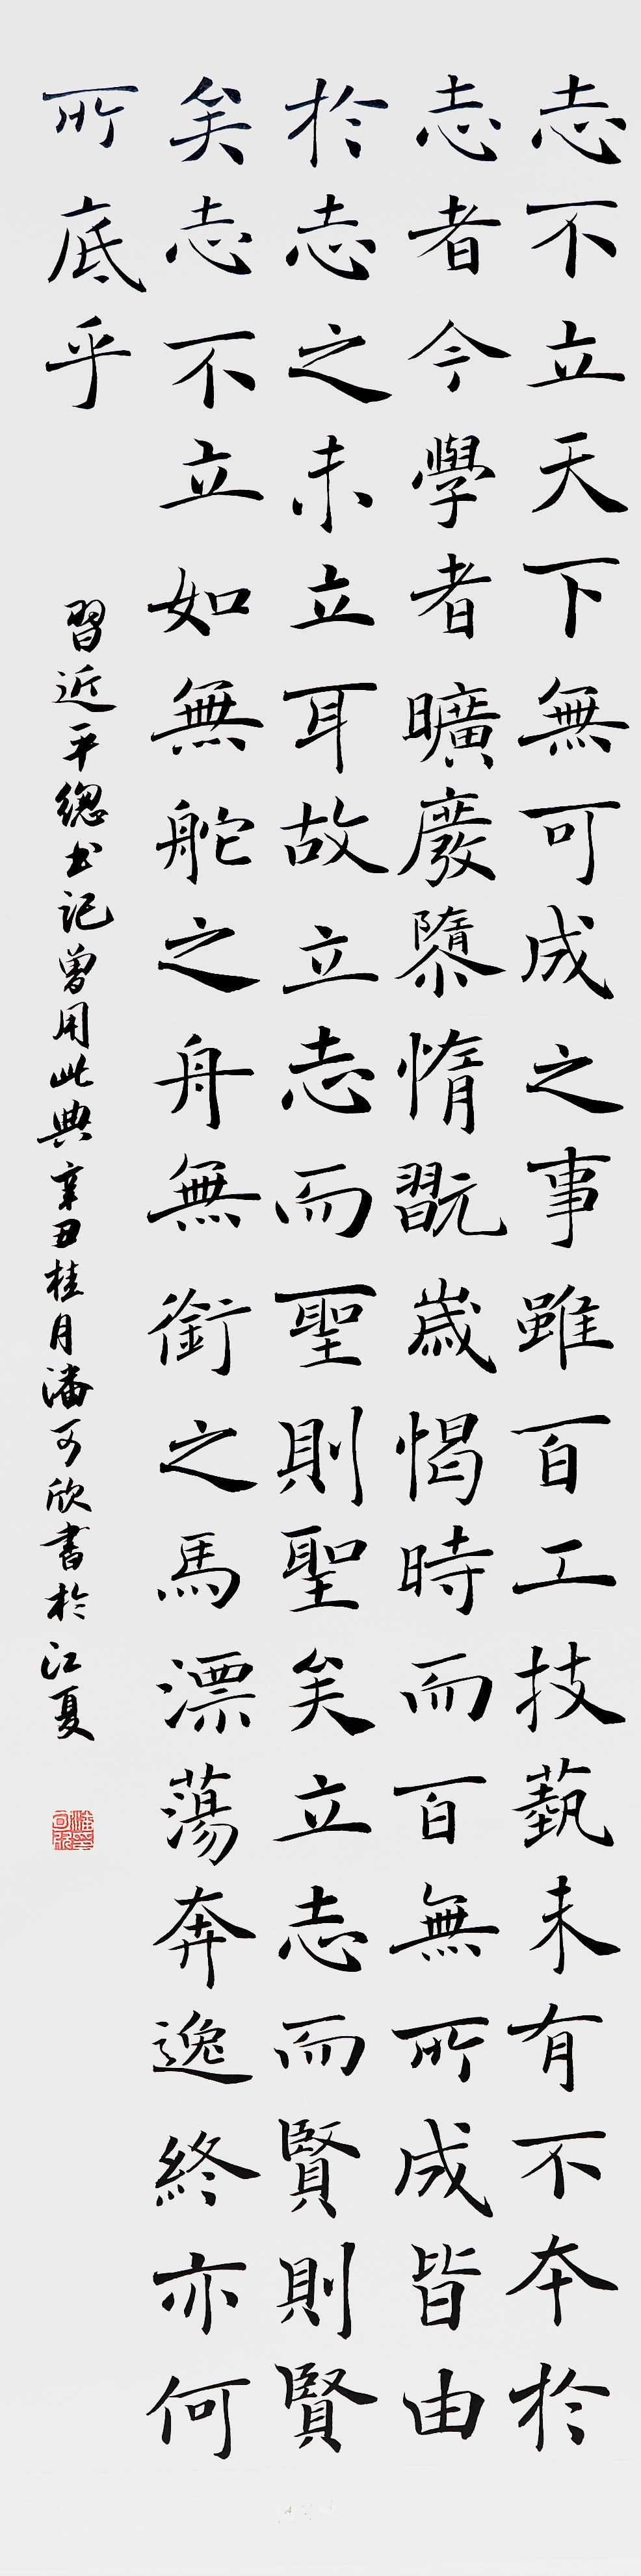 志不立天下無可成之事雖百工技藝未有不本於
志者今學者曠廢隳惰翫歲愒時而百無所成皆由
於志之未立耳故立志而聖則聖矣立志而賢則賢
矣志不立如無舵之舟無銜之馬漂蕩奔逸終亦何
所底乎
習近平總书記曾用此典辛丑桂月潘可欣書於江夏